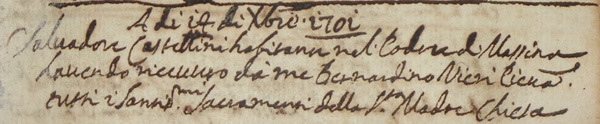 A dì 14 di Xbre 1701
Salvadore Castellini habitante nel Podere di Massina
havendo ricevuto da me Bernardino Vieri
tutti i Santis.mi Sacramenti della S.ta Madre Chiesa